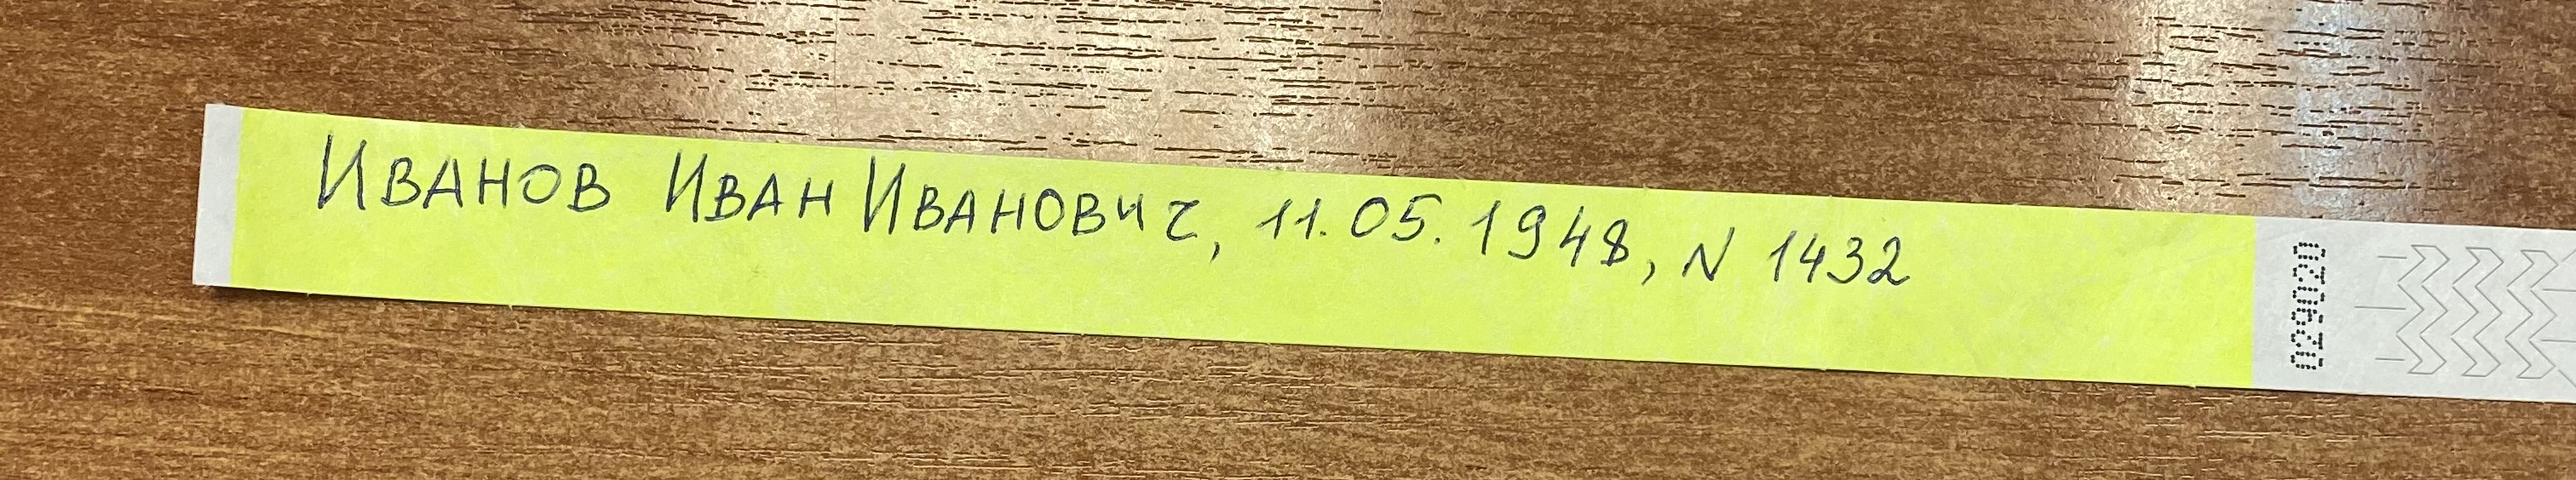 Иванов Иван Иванович, 11.05.1948, N 1432